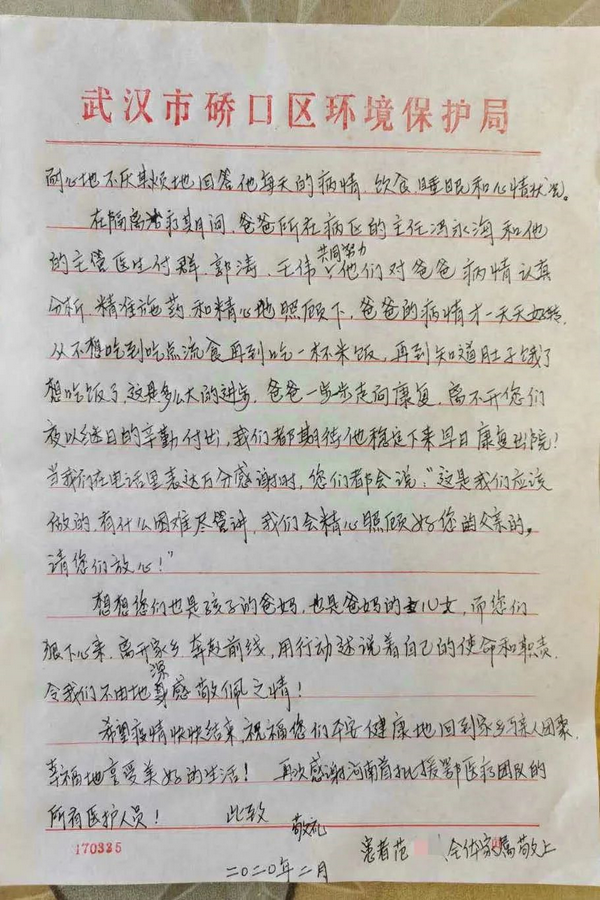 武汉市硚口区环境保护局
耐心地不厌其烦地回答他每天的病情、饮食、睡眠和心情状况。
在隔离治疗期间,爸爸所在病区的主任冯永海和他
的主管医生付群、郭涛、王伟共同努力,他们对爸爸病情认真
分析、精准施药和精心地照顾下,爸爸的病情才一天天好转,
从不想吃到吃点流食再到吃一杯米饭,再到知道肚子饿了
想吃饭了,这是多么大的进步,爸爸一步步走向康复,离不开您们
夜以继日的辛勤付出,我们都期待他稳定下来早日康复出院!
当我们在电话里表达万分感谢时,您们都会说:“这是我们应该
做的,有什么困难尽管讲,我们会精心照顾好您的父亲的。
请您们放心!”
想想您们也是孩子的爸妈,也是爸妈的儿女,而您们
狠下心来,离开家乡奔赴前线,用行动述说着自己的使命和职责,
令我们不由地深感敬佩之情!
希望疫情快快结束,祝福您们平安健康地回到家乡与亲人团聚,
幸福地享受美好的生活!再次感谢河南首批援鄂医疗团队的
所有医护人员! 此致
敬礼
170325
患者范 全体家属敬上
二〇二〇年二月